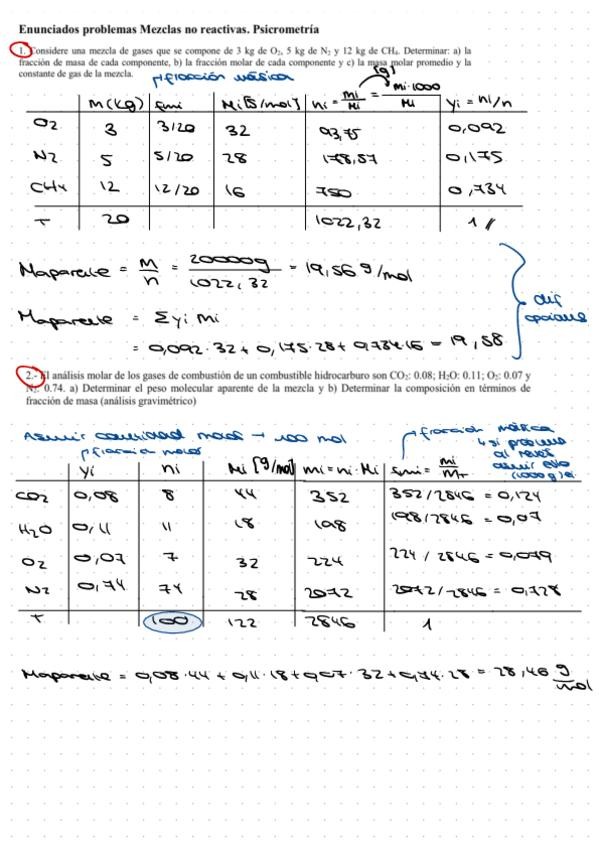 Enunciados problemas Mezclas no reactivas. Psicrometría
1. Considere una mezcla de gases que se compone de 3 kg de O2, 5 kg de N2 y 12 kg de CH4. Determinar: a) la
fracción de masa de cada componente, b) la fracción molar de cada componente y c) la masa molar promedio y la
constante de gas de la mezcla.
fracción másica
[g]
m(kg) fmi Mi[g/mol] ni = mi/Mi = mi·1000/Mi yi = ni/n
O2 3 3/20 32 93,75 0,092
N2 5 5/20 28 178,57 0,175
CH4 12 12/20 16 750 0,734
T 20 1022,32 1
Maparente = m/n = 20000g/1022,32 = 19,56 g/mol
Maparente = Σyi Mi
= 0,092·32 + 0,175·28 + 0,734·16 = 19,58
dif
opciones
2.- El análisis molar de los gases de combustión de un combustible hidrocarburo son CO2: 0.08; H2O: 0.11; O2: 0.07 y
N2: 0.74. a) Determinar el peso molecular aparente de la mezcla y b) Determinar la composición en términos de
fracción de masa (análisis gravimétrico)
Asumir cantidad moles → 100 mol
fracción molar
fracción másica
si problema
al revés
asumir esto
(1000g)
yi ni Mi [g/mol] mi = ni·Mi fmi = mi/mT
CO2 0,08 8 44 352 352/2846 = 0,124
H2O 0,11 11 18 198 198/2846 = 0,07
O2 0,07 7 32 224 224/2846 = 0,079
N2 0,74 74 28 2072 2072/2846 = 0,728
T 100 122 2846 1
Maparente = 0,08·44 + 0,11·18 + 0,07·32 + 0,74·28 = 28,46 g/mol